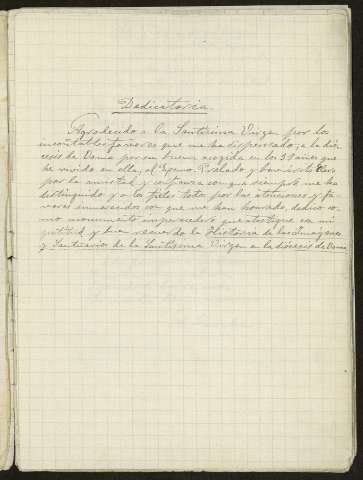 Dedicatoria.
Agradecido a la Santísima Virgen por los
incontables favores que me ha dispensado; a la dió-
cesis de Vania por su buena acogida en los 39 años que
he vivido en ella; al Excmo. Prelado y bonísimo Clero
por la amistad y confianza con que siempre me ha
distinguido y a la fieles toda por las atenciones y fa-
vores inmerecidos con que me han honrado, dedico co-
mo monumento imperecedero que atestigüe mi
gratitud y buen recuerdo la Historia de las Imágenes
y Santuarios de la Santísima Virgen en la diócesis de Vania